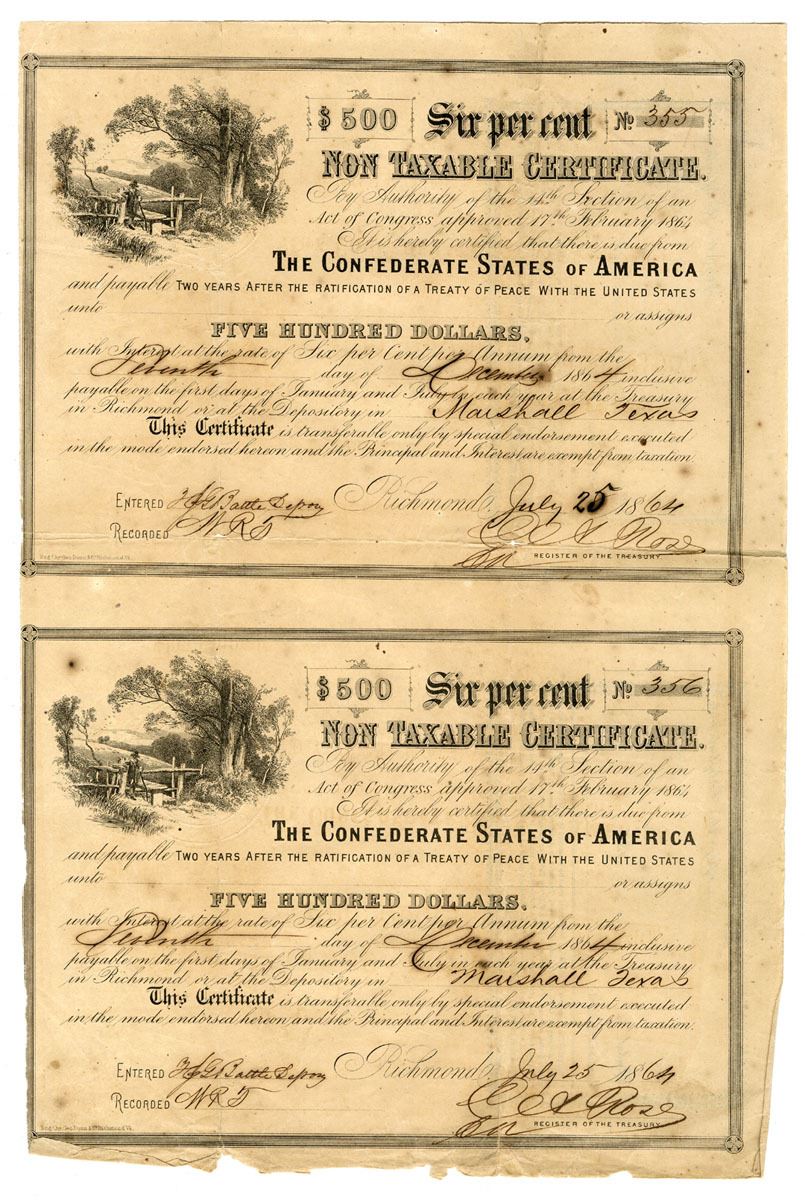 $500 Six per cent No 355
NON TAXABLE CERTIFICATE.
By Authority of the 14th Section of an
Act of Congress approved 17th February 1864
It is hereby certified that there is due from
THE CONFEDERATE STATES OF AMERICA
and payable TWO YEARS AFTER THE RATIFICATION OF A TREATY OF PEACE WITH THE UNITED STATES
unto or assigns
FIVE HUNDRED DOLLARS,
with Interest at the rate of Six per Cent per Annum from the
Seventh day of December 1864 inclusive
payable on the first days of January and July in each year at the Treasury
in Richmond or at the Depository in Marshall Texas
This Certificate is transferable only by special endorsement executed
in the mode endorsed hereon and the Principal and Interest are exempt from taxation.
ENTERED Battle Depoy Richmond, July 25 1864
RECORDED WRT Rose
REGISTER OF THE TREASURY
$500 Six per cent No 356
NON TAXABLE CERTIFICATE.
By Authority of the 14th Section of an
Act of Congress approved 17th February 1864
It is hereby certified that there is due from
THE CONFEDERATE STATES OF AMERICA
and payable TWO YEARS AFTER THE RATIFICATION OF A TREATY OF PEACE WITH THE UNITED STATES
unto or assigns
FIVE HUNDRED DOLLARS,
with Interest at the rate of Six per Cent per Annum from the
Seventh day of December 1864 inclusive
payable on the first days of January and July in each year at the Treasury
in Richmond or at the Depository in Marshall Texas
This Certificate is transferable only by special endorsement executed
in the mode endorsed hereon and the Principal and Interest are exempt from taxation.
ENTERED Battle Depoy Richmond, July 25 1864
RECORDED WRT Rose
REGISTER OF THE TREASURY